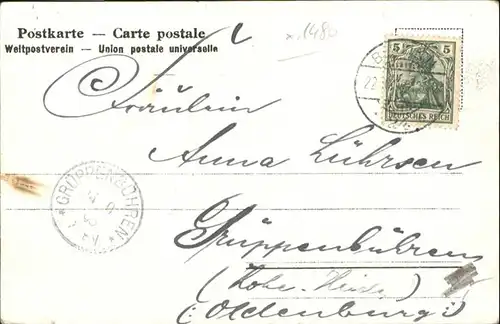 Postkarte — Carte postale
Weltpostverein — Union postale universelle
x 1480
5 5
DEUTSCHES REICH
Fräulein
Anna Lührsen
* GRÜPPENBÜHREN *
Grüppenbühren
(Hohe-
(Oldenburg)